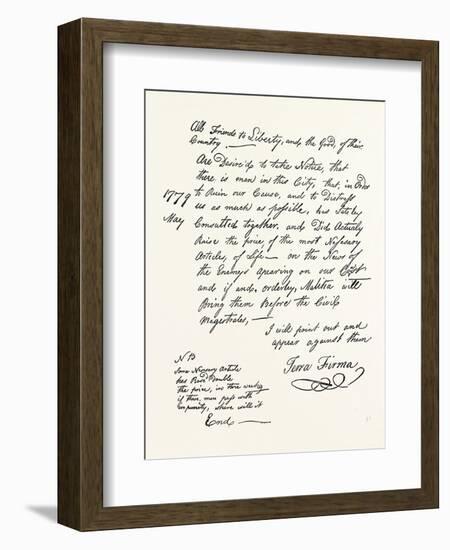 All Friends to Liberty, and the Good, of their
Country
Are Desire'd to take Notice, that
there is men in this City, that, in Order
to Ruin our Cause, and to Distress
1779
us as much as possible, has lately
May
Consulted together, and Did Actualy
Raise the price, of the most Nesesary
Articles of Life — on the News of
the Enemeys apearing on our
and if and, orderley, Malitia will
Bring them Before the Civil
Magestrates,—
I will point out and
appear against them
Terra Firma
NB
Some Nesesary Article
has Double
the price, in three weeks,
if these men pass with
impunity, where will it
End —